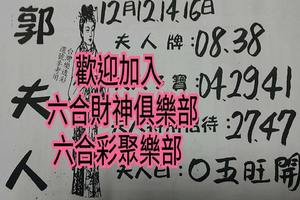 郭夫人
12月12.14.16日
夫人牌:08.38
歡迎加入
寶:04.29.41
六合財神俱樂部
招待:27.47
六合彩聚樂部
〇五旺開